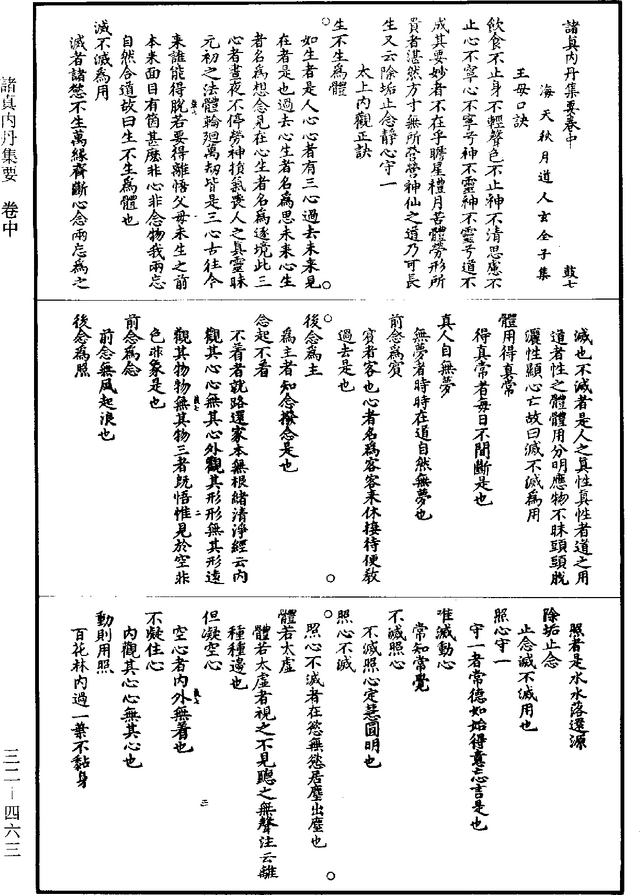 諸真內丹集要卷中
海天秋月道人玄全子集　鼓七
王母口訣
飲食不止身不輕聲色不止神不清思慮不
止心不寧心不寧兮神不靈神不靈兮道不
成其要妙者不在乎瞻星禮月苦體勞形所
貴者湛然方寸無所營營神仙之道乃可長
生又云除垢止念靜心守一
太上內觀正訣
生不生為體
如生者是人心心者有三心過去未來見
在者是也過去心生者名為思未來心生
者名為想念見在心生者名為逐境此三
心者晝夜不停勞神損氣喪人之真靈昧
元初之法體輪迴萬劫皆是三心古往今
來誰能得脫若要得離悟父母未生之前
本來面目有箇甚麼非心非念物我兩忘
自然合道故曰生不生為體也
滅不滅為用
滅者諸慾不生萬緣齊斷心念兩忘為之
滅也不滅者是人之真性真性者道之用
道者性之體體用分明應物不昧頭頭脫
灑性顯心亡故曰滅不滅為用
體用得真常
得真常者每日不間斷是也
真人自無夢
無夢者時時在道自然無夢也
前念為賓
賓者客也心者名為客客來休接待便教
過去是也
後念為主
為主者知念撥念是也
念起不看
不看者就路還家本無根緒清淨經云內
觀其心心無其心外觀其形形無其形遠
觀其物物無其物三者既悟惟見於空非
色非象是也
前念為念
前念無風起浪也
後念為照
照者是水水落還源
除垢止念
止念滅不滅用也
照心守一
守一者常德如始得意忘言是也
唯滅動心
常知常覺
不滅照心
不滅照心定慧圓明也
照心不滅
照心不滅者在慾無慾居塵出塵也
體若太虛
體若太虛者視之不見聽之無聲注云離
種種邊也
但凝空心
空心者內外無著也
不凝住心
內觀其心心無其心也
動則用照
百花林內過一葉不黏身
諸真內丹集要　卷中
三二－四六三
二
三